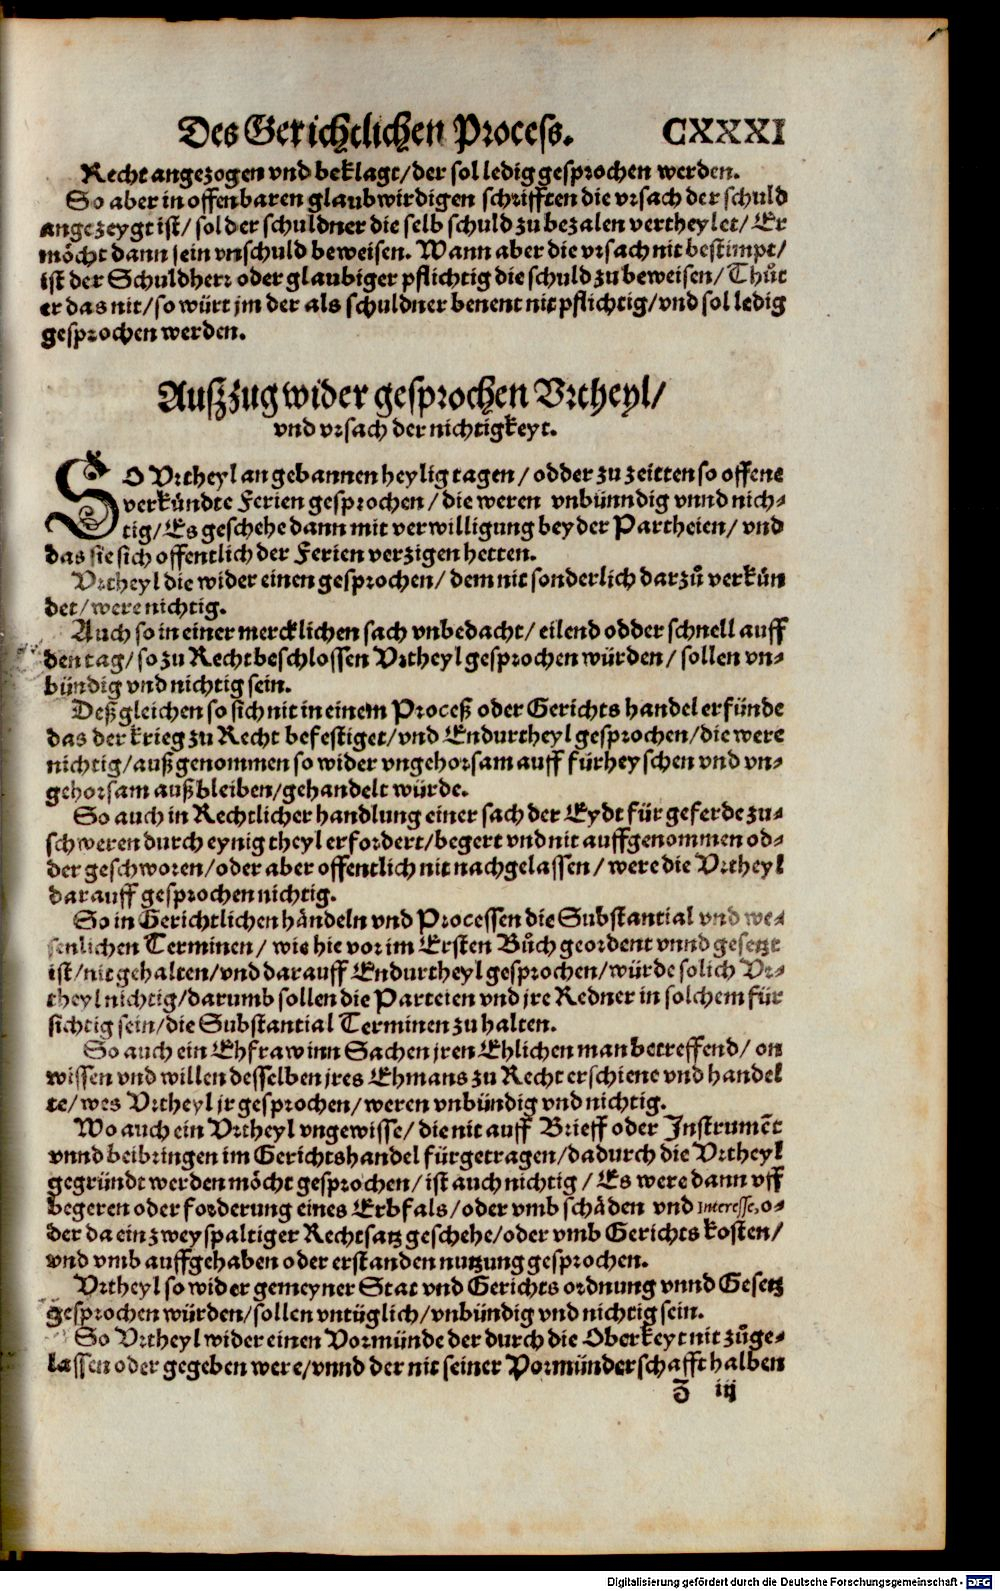 Des Gerichtlichen Process. CXXXI
Recht angezogen vnd beklagt/der sol ledig gesprochen werden.
So aber in offenbaren glaubwirdigen schrifften die vrsach der schuld
angezeygt ist/ sol der schuldner die selb schuld zu bezalen vertheylet/ Er
möcht dann sein vnschuld beweisen. Wann aber die vrsach nit bestimpt/
ist der Schuldherr oder glaubiger pflichtig die schuld zu beweisen/ Thůt
er das nit/so würt jm der als schuldner benent nit pflichtig/vnd sol ledig
gesprochen werden.
Auszzug wider gesprochen Vrtheyl/
vnd vrsach der nichtigkeyt.
SO Vrtheyl an gebannen heylig tagen/ odder zu zeitten so offene
verkündte Ferien gesprochen/ die weren vnbünndig vnnd nich-
tig/ Es geschehe dann mit verwilligung beyder Partheien/ vnd
das sie sich offentlich der Ferien verzigen hetten.
Vrtheyl die wider einen gesprochen/ dem nit sonderlich darzů verkün
det/ were nichtig.
Auch so in einer mercklichen sach vnbedacht/ eilend odder schnell auff
den tag/ so zu Recht beschlossen Vrtheyl gesprochen würden/ sollen vn-
bündig vnd nichtig sein.
Deßgleichen so sich nit in einem Proceß oder Gerichts handel erfünde
das der krieg zu Recht befestiget/vnd Endurtheyl gesprochen/die were
nichtig/außgenommen so wider vngehorsam auff fürheyschen vnd vn-
gehorsam außbleiben/gehandelt würde.
So auch in Rechtlicher handlung einer sach der Eydt für geferde zu-
schweren durch eynig theyl erfordert/begert vnd nit auffgenommen od-
der geschworen/oder aber offentlich nit nachgelassen/ were die Vrtheyl
darauff gesprochen nichtig.
So in Gerichtlichen händeln vnd Processen die Substantial vnd we-
senlichen Terminen/ wie hie vor im Ersten Bůch geordent vnnd gesetzt
ist/nit gehalten/vnd darauff Endurtheyl gesprochen/würde solich Vr-
theyl nichtig/darumb sollen die Parteien vnd jre Redner in solchem für
sichtig sein/die Substantial Terminen zu halten.
So auch ein Ehfraw inn Sachen jren Ehlichen man betreffend/ on
wissen vnd willen desselben jres Ehmans zu Recht erschiene vnd handel
te/ wes Vrtheyl jr gesprochen/ weren vnbündig vnd nichtig.
Wo auch ein Vrtheyl vngewisse/ die nit auff Brieff oder Instrumēt
vnnd beibringen im Gerichtshandel fürgetragen/dadurch die Vrtheyl
gegründt werden möcht gesprochen/ ist auch nichtig/ Es were dann vff
begeren oder forderung eines Erbfals/oder vmb schäden vnd Interesse, o-
der da ein zweyspaltiger Rechtsatz geschehe/oder vmb Gerichts kosten/
vnd vmb auffgehaben oder erstanden nutzung gesprochen.
Vrtheyl so wider gemeyner Stat vnd Gerichts ordnung vnnd Gesetz
gesprochen würden/sollen vntüglich/vnbündig vnd nichtig sein.
So Vrtheyl wider einen Vormünde der durch die Oberkeyt nit zůge-
lassen oder gegeben were/vnnd der nit seiner Vormünderschafft halben
Z iij
Digitalisierung gefördert durch die Deutsche Forschungsgemeinschaft - DFG